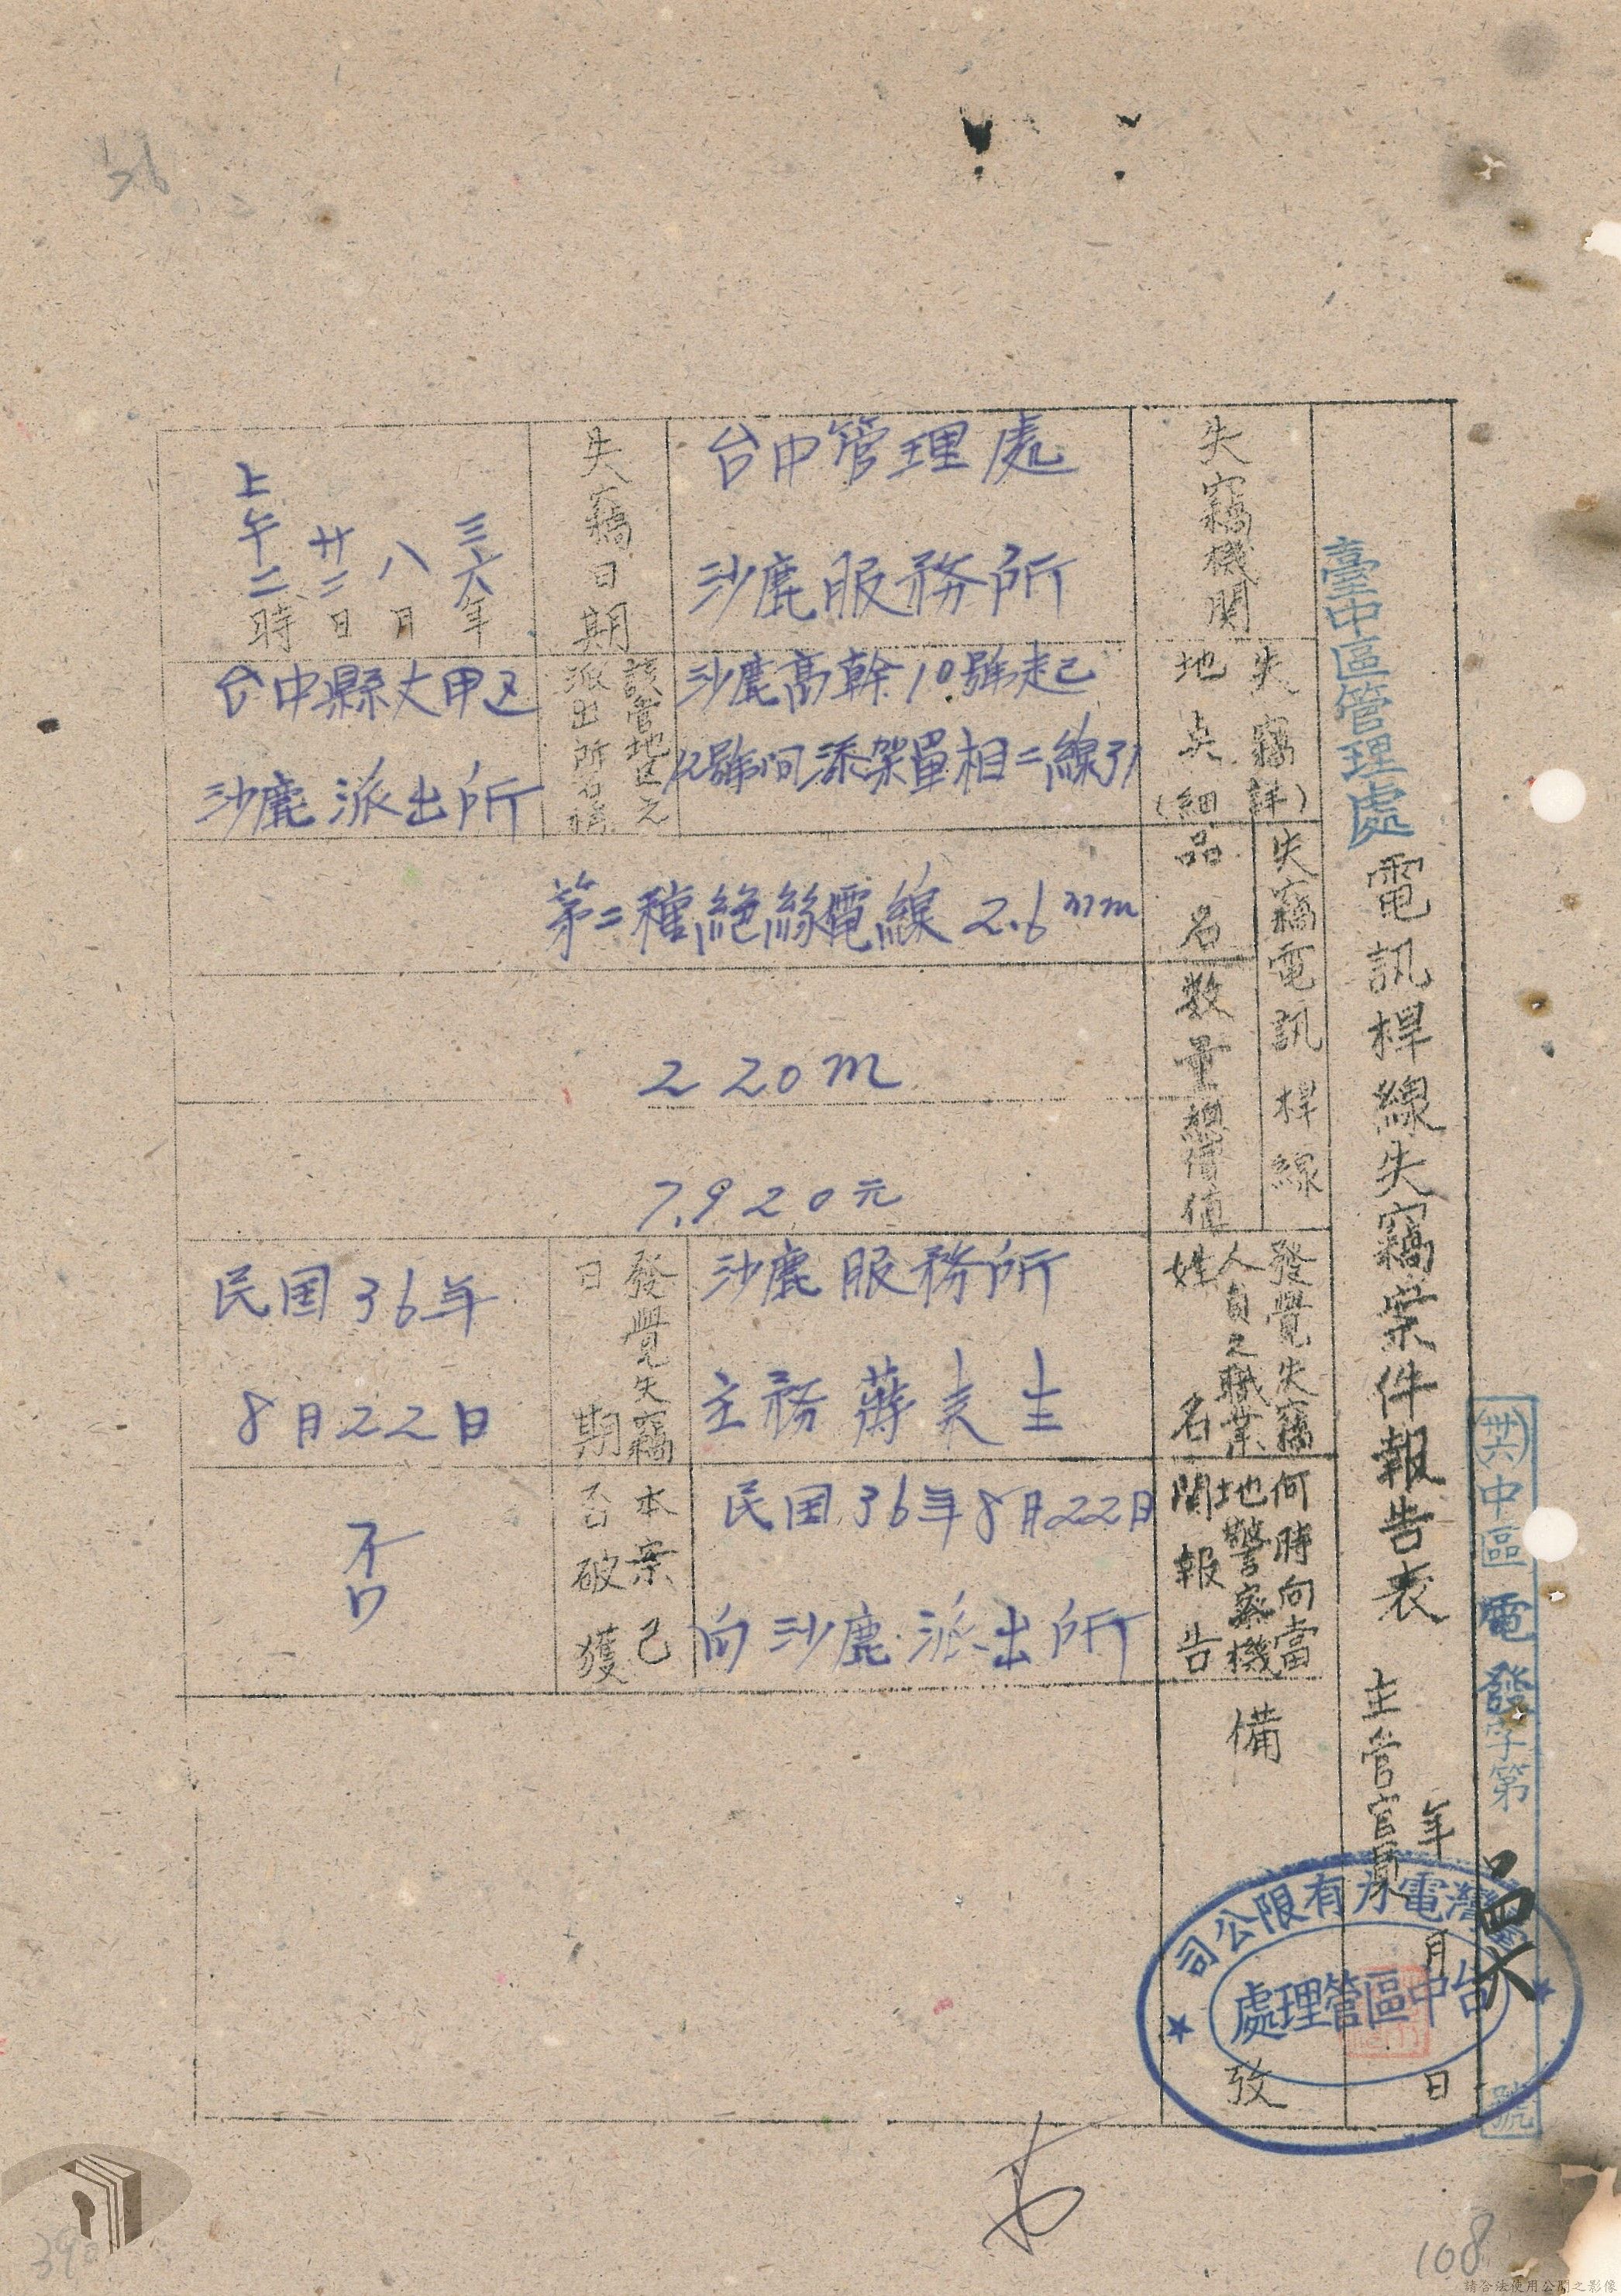 卅六中區電發字第 號
吕四六
臺中區管理處電訊桿線失竊案件報告表
主管官員
年 月 日
失竊機関
台中管理處
沙鹿服務所
失竊日期
三六年
八月
廿二日
上午二時
失竊地点(詳細)
沙鹿高幹10號起
12號间添架單相二線引
該管地区之派出所名稱
台中縣大甲区
沙鹿派出所
失竊電訊桿線
品名
第二種絕緣電線 2.6mm
数量
220m
總價值
7,920元
發覺失竊人員之職業姓名
沙鹿服務所
主務 蔣 生
發覺失竊日期
民国36年
8月22日
何時向當地警察機関報告
民国36年8月22日
向沙鹿派出所
本案已否破獲
否
備攷
臺灣電力有限公司
台中區管理處
36
390
108
請合法使用公開之影像